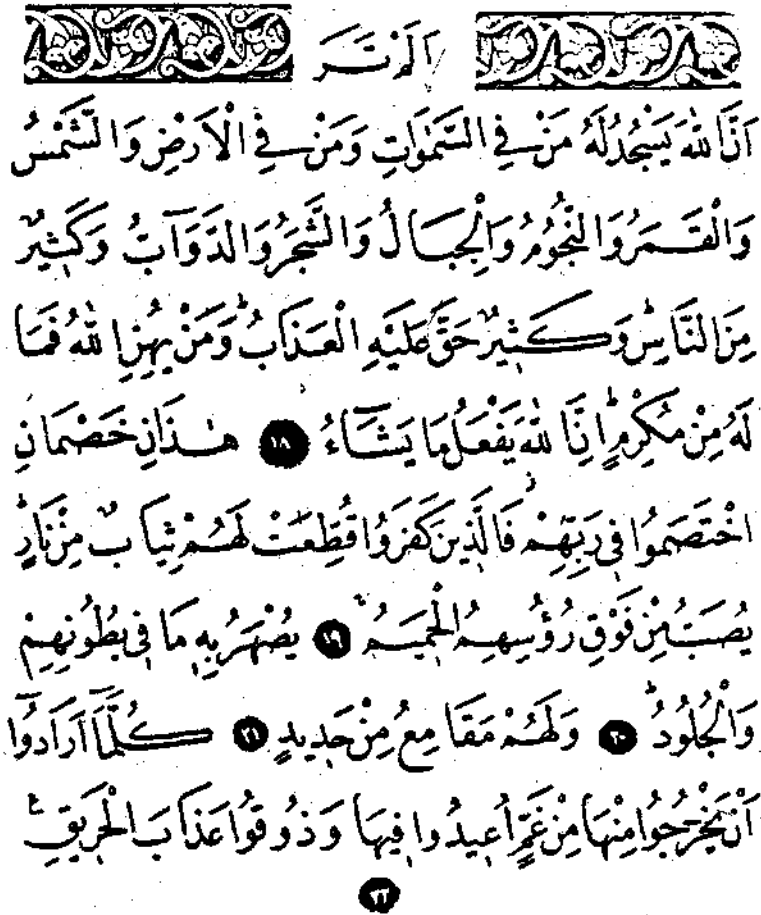 اَلَمْ تَرَ
اَنَّ اللّٰهَ يَسْجُدُ لَهُ مَنْ فِي السَّمٰوَاتِ وَمَنْ فِي الْاَرْضِ وَالشَّمْسُ
وَالْقَمَرُ وَالنُّجُومُ وَالْجِبَالُ وَالشَّجَرُ وَالدَّوَآبُّ وَكَثِيرٌ
مِنَ النَّاسِۜ وَكَثِيرٌ حَقَّ عَلَيْهِ الْعَذَابُۜ وَمَنْ يُهِنِ اللّٰهُ فَمَا
لَهُ مِنْ مُكْرِمٍۜ اِنَّ اللّٰهَ يَفْعَلُ مَا يَشَٓاءُ ﴿١٨﴾ هٰذَانِ خَصْمَانِ
اخْتَصَمُوا فِي رَبِّهِمْۘ فَالَّذِينَ كَفَرُوا قُطِّعَتْ لَهُمْ ثِيَابٌ مِنْ نَارٍۜ
يُصَبُّ مِنْ فَوْقِ رُؤُسِهِمُ الْحَمِيمُۚ ﴿١٩﴾ يُصْهَرُ بِهِ مَا فِي بُطُونِهِمْ
وَالْجُلُودُۜ ﴿٢٠﴾ وَلَهُمْ مَقَامِعُ مِنْ حَدِيدٍ ﴿٢١﴾ كُلَّمَٓا اَرَادُٓوا
اَنْ يَخْرُجُوا مِنْهَا مِنْ غَمٍّ اُعِيدُوا فِيهَا وَذُوقُوا عَذَابَ الْحَرِيقِ۟
﴿٢٢﴾